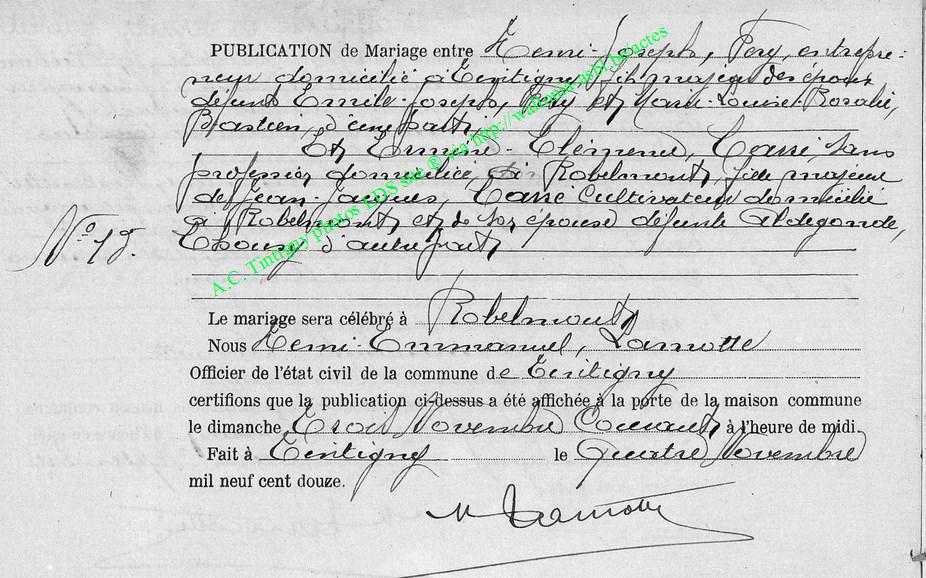 PUBLICATION de Mariage entre Henri-Joseph, Fery, entrepre-
neur domicilié à Tintigny, fils majeur des époux
défunts Emile-Joseph, Fery et Marie-Louise-Rosalie,
Bastien d'une part,
Et Ermine-Clémence, Cassé, sans
profession domiciliée à Robelmont, fille majeure
de Jean-Jacques, Cassé Cultivateur domicilié
à Robelmont et de son épouse défunte Aldegonde,
d'autre part,
N° 18.
Le mariage sera célébré à Robelmont
Nous Henri-Emmanuel, Lamotte
Officier de l'état civil de la commune de Tintigny
certifions que la publication ci-dessus a été affichée à la porte de la maison commune
le dimanche Trois Novembre Courant, à l'heure de midi.
Fait à Tintigny le Quatre Novembre
mil neuf cent douze.
H Lamotte
A.C. Tintigny photos LDS site ® via http://wallonia.asbl_bs.actes